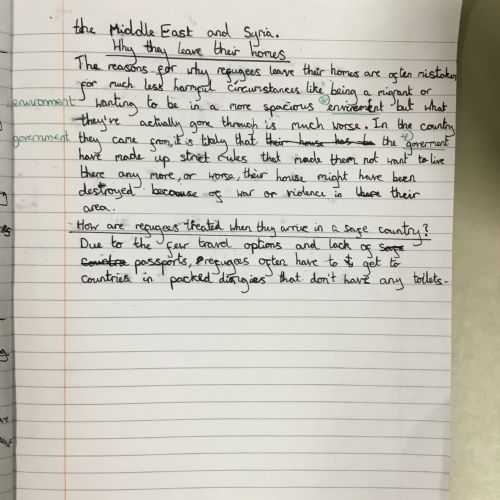 the Middle East and Syria.
Why they leave their homes
The reasons for why refugees leave their homes are often mistaken
for much less harmful circumstances like being a migrant or
environment wanting to be in a more spacious envirement but what
they've actually gone through is much worse. In the country
government they came from, it is likely that their house has be the goverment
have made up strict rules that made them not want to live
there any more, or worse, their house might have been
destroyed because of war or violence in there their
area.
How are refugees treated when they arrive in a safe country?
Due to the few travel options and lack of safe
countrie passports, refugees often have to get to
countries in packed dingies that don't have any toilets.